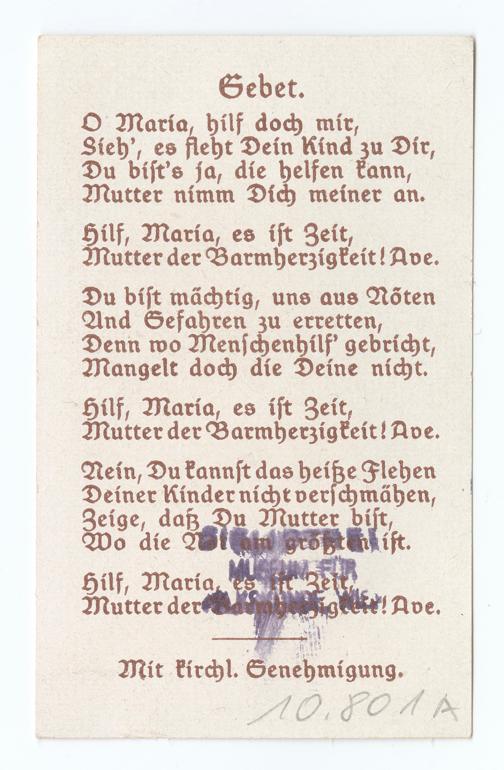 Gebet.
O Maria, hilf doch mir,
Sieh', es fleht Dein Kind zu Dir,
Du bist's ja, die helfen kann,
Mutter nimm Dich meiner an.
Hilf, Maria, es ist Zeit,
Mutter der Barmherzigkeit! Ave.
Du bist mächtig, uns aus Nöten
And Gefahren zu erretten,
Denn wo Menschenhilf' gebricht,
Mangelt doch die Deine nicht.
Hilf, Maria, es ist Zeit,
Mutter der Barmherzigkeit! Ave.
Nein, Du kannst das heiße Flehen
Deiner Kinder nicht verschmähen,
Zeige, daß Du Mutter bist,
Wo die Not am größten ist.
Hilf, Maria, es ist Zeit,
Mutter der Barmherzigkeit! Ave.
MUSEUM FÜR
Mit kirchl. Genehmigung.
10.801A